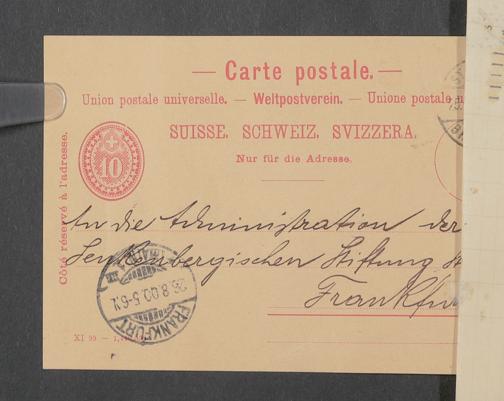 — Carte postale. —
Union postale universelle. — Weltpostverein. — Unione postale
SUISSE. SCHWEIZ. SVIZZERA.
Nur für die Adresse.
Côté réservé à l'adresse.
10
An die Administration der
Senkenbergischen Stiftung
Frankfur
FRANKFURT
26.8.00.5-6N.
XI 99 —